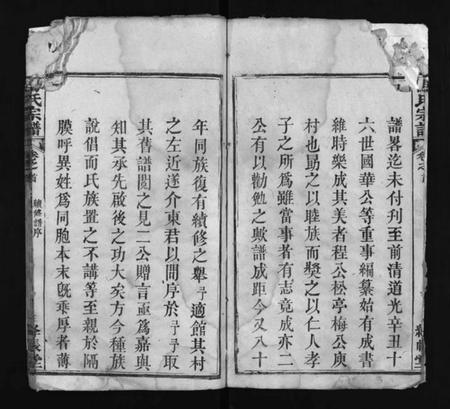 譜畧迄未付刊至前清道光辛丑十
六世國華公等重事編纂始有成書
維時樂成其美者程公松亭梅公庾
村也勗之以睦族而奬之以仁人孝
子之所爲雖當事者有志竟成亦二
公有以勸勉之歟譜成距今又八十
年同族復有續修之舉予適館其村
之左近遂介東君以問序於予予取
其舊譜閱之見二公贈言亟爲嘉與
知其承先啟後之功大矣方今種族
說倡而氏族置之不講等至親於隔
膜呼異姓爲同胞本末旣乖厚者薄
氏宗譜
卷之首
續修譜序